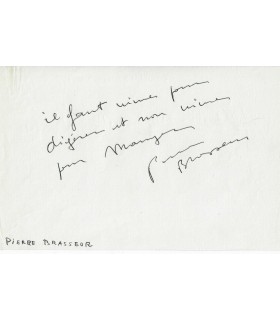 il faut vivre pour
digérer et non vivre
pour manger
Pierre
Brasseur
PIERRE BRASSEUR